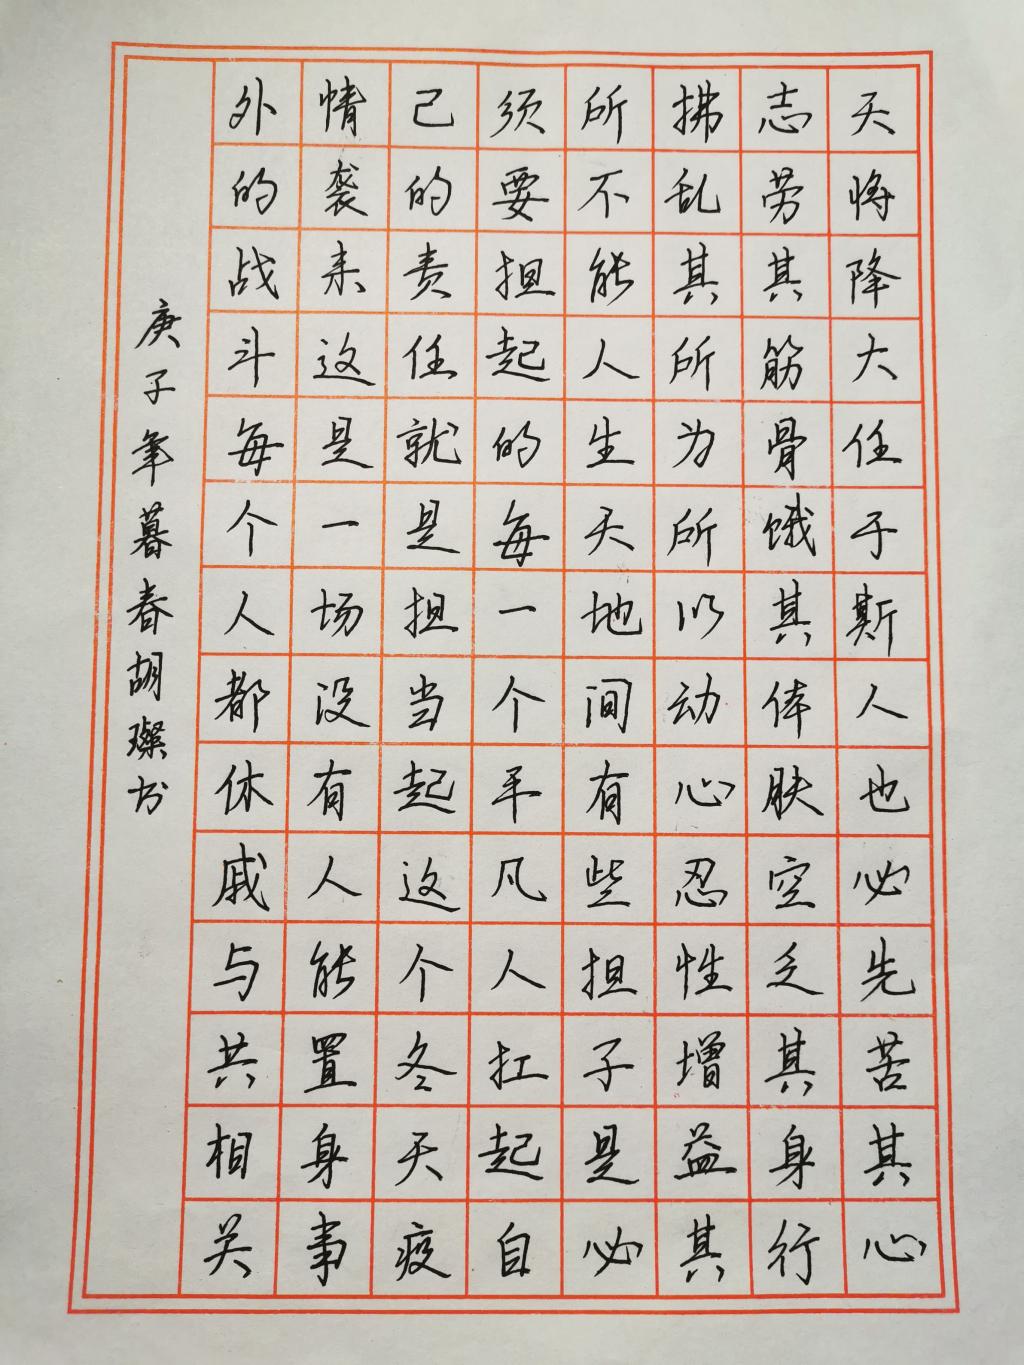 天将降大任于斯人也必先苦其心
志劳其筋骨饿其体肤空乏其身行
拂乱其所为所以动心忍性增益其
所不能人生天地间有些担子是必
须要担起的每一个平凡人扛起自
己的责任就是担当起这个冬天疫
情袭来这是一场没有人能置身事
外的战斗每个人都休戚与共相关
庚子年暮春胡璨书